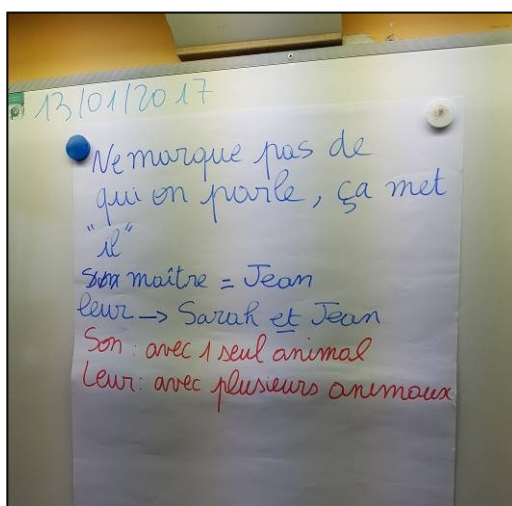 13/01/2017
Ne marque pas de
qui on parle, ça met
"il"
maître = Jean
leur → Sarah et Jean
Son : avec 1 seul animal
Leur : avec plusieurs animaux